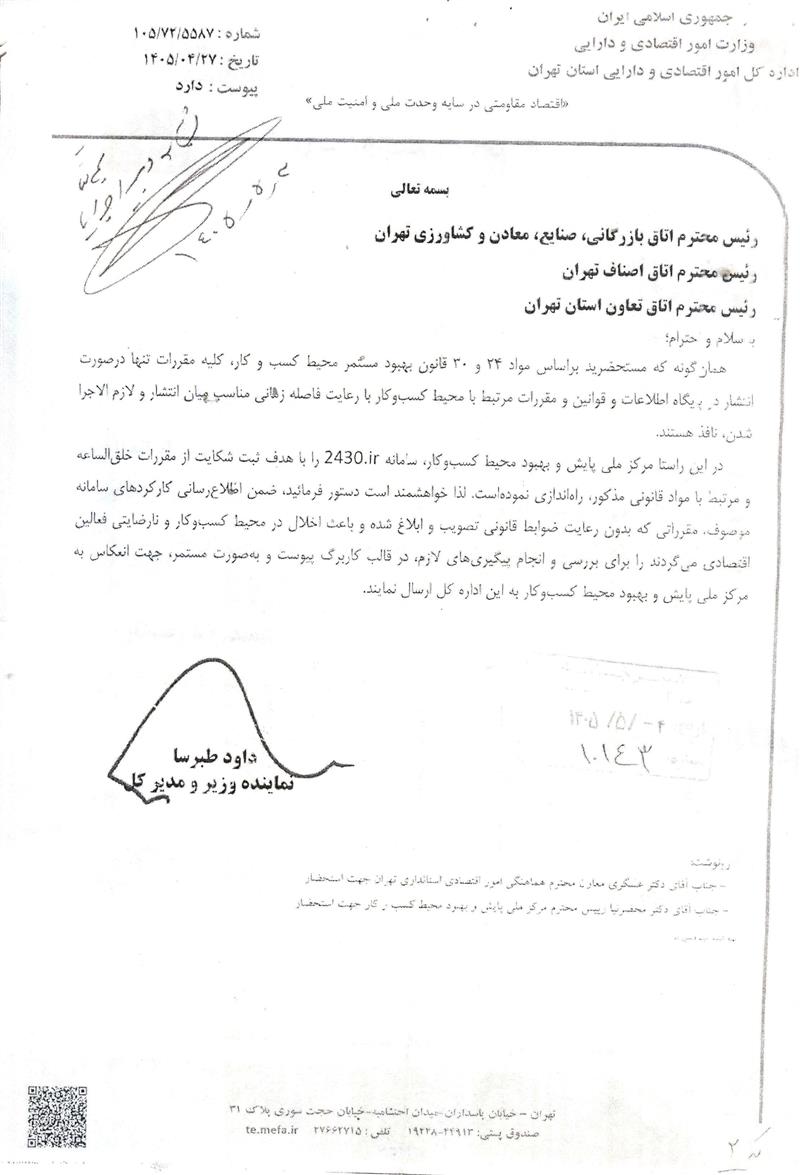 جمهوری اسلامی ایران
وزارت امور اقتصادی و دارایی
اداره کل امور اقتصادی و دارایی استان تهران
شماره : ۱۰۵/۷۲/۵۵۸۷
تاریخ : ۱۴۰۵/۰۴/۲۷
پیوست : دارد
«اقتصاد مقاومتی در سایه وحدت ملی و امنیت ملی»
بسمه تعالی
رئیس محترم اتاق بازرگانی، صنایع، معادن و کشاورزی تهران
رئیس محترم اتاق اصناف تهران
رئیس محترم اتاق تعاون استان تهران
با سلام و احترام؛
همان‌گونه که مستحضرید براساس مواد ۲۴ و ۳۰ قانون بهبود مستمر محیط کسب و کار، کلیه مقررات تنها درصورت
انتشار در پگاه اطلاعات و قوانین و مقررات مرتبط با محیط کسب‌وکار با رعایت فاصله زمانی مناسب میان انتشار و لازم الاجرا
شدن، نافذ هستند.
در این راستا مرکز ملی پایش و بهبود محیط کسب‌وکار، سامانه 2430.ir را با هدف ثبت شکایت از مقررات خلق‌الساعه
و مرتبط با مواد قانونی مذکور، راه‌اندازی نموده‌است. لذا خواهشمند است دستور فرمائید، ضمن اطلاع‌رسانی کارکردهای سامانه
موصوف، مقرراتی که بدون رعایت ضوابط قانونی تصویب و ابلاغ شده و باعث اخلال در محیط کسب‌وکار و نارضایتی فعالین
اقتصادی می‌گردند را برای بررسی و انجام پیگیری‌های لازم، در قالب کاربرگ پیوست و به‌صورت مستمر، جهت انعکاس به
مرکز ملی پایش و بهبود محیط کسب‌وکار به این اداره کل ارسال نمایند.
داود طبرسا
نماینده وزیر و مدیر کل
۱۰۱۴۳
رونوشت:
- جناب آقای دکتر عسگری معاون محترم هماهنگی امور اقتصادی استانداری تهران جهت استحضار
- جناب آقای دکتر محصرنیا رییس محترم مرکز ملی پایش و بهبود محیط کسب و کار جهت استحضار
تهران - خیابان پاسداران-میدان احتشامیه-خیابان حجت سوری پلاک ۳۱
صندوق پستی: ۲۴۹۱۳-۱۹۲۲۸ تلفن : ۲۷۶۶۲۷۱۵ te.mefa.ir